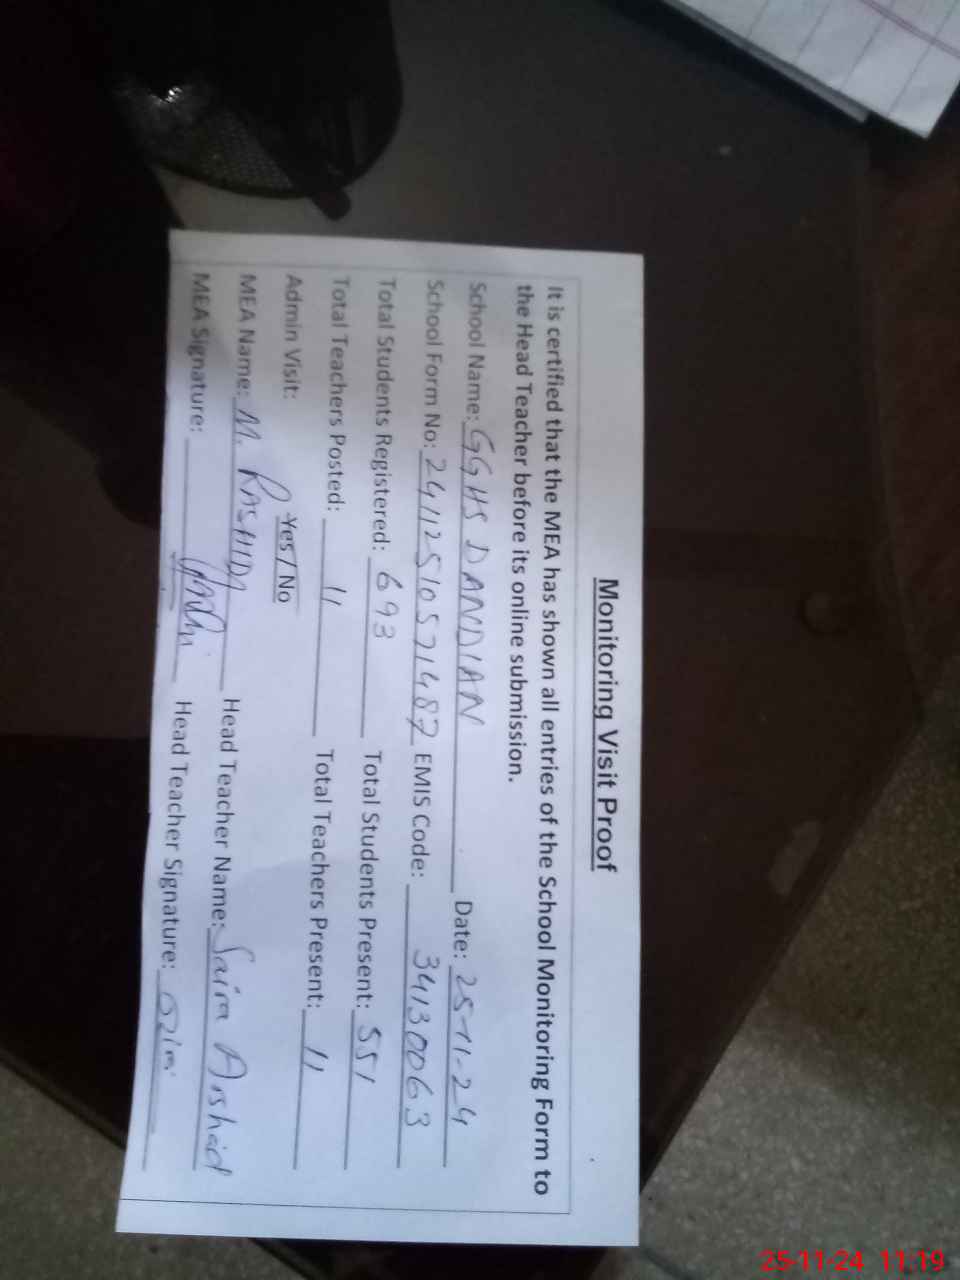 Monitoring Visit Proof
It is certified that the MEA has shown all entries of the School Monitoring Form to
the Head Teacher before its online submission.
School Name: GGHS DANDIAN Date: 25-11-24
School Form No: 24112510571487 EMIS Code: 34130063
Total Students Registered: 693 Total Students Present: 551
Total Teachers Posted: 11 Total Teachers Present: 11
Admin Visit: Yes / No
MEA Name: M. RASHID Head Teacher Name: Saira Arshad
MEA Signature: Head Teacher Signature:
25-11-24 11:19